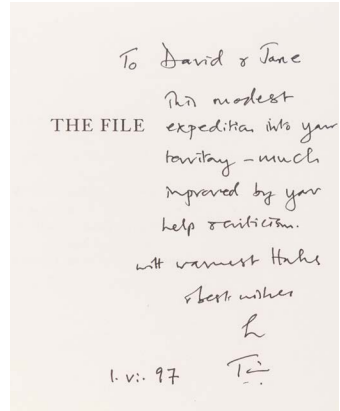 To David & Jane
This modest
THE FILE expedition into your
territory – much
improved by your
help & criticism.
with warmest thanks
& best wishes
Tim
1. vi. 97